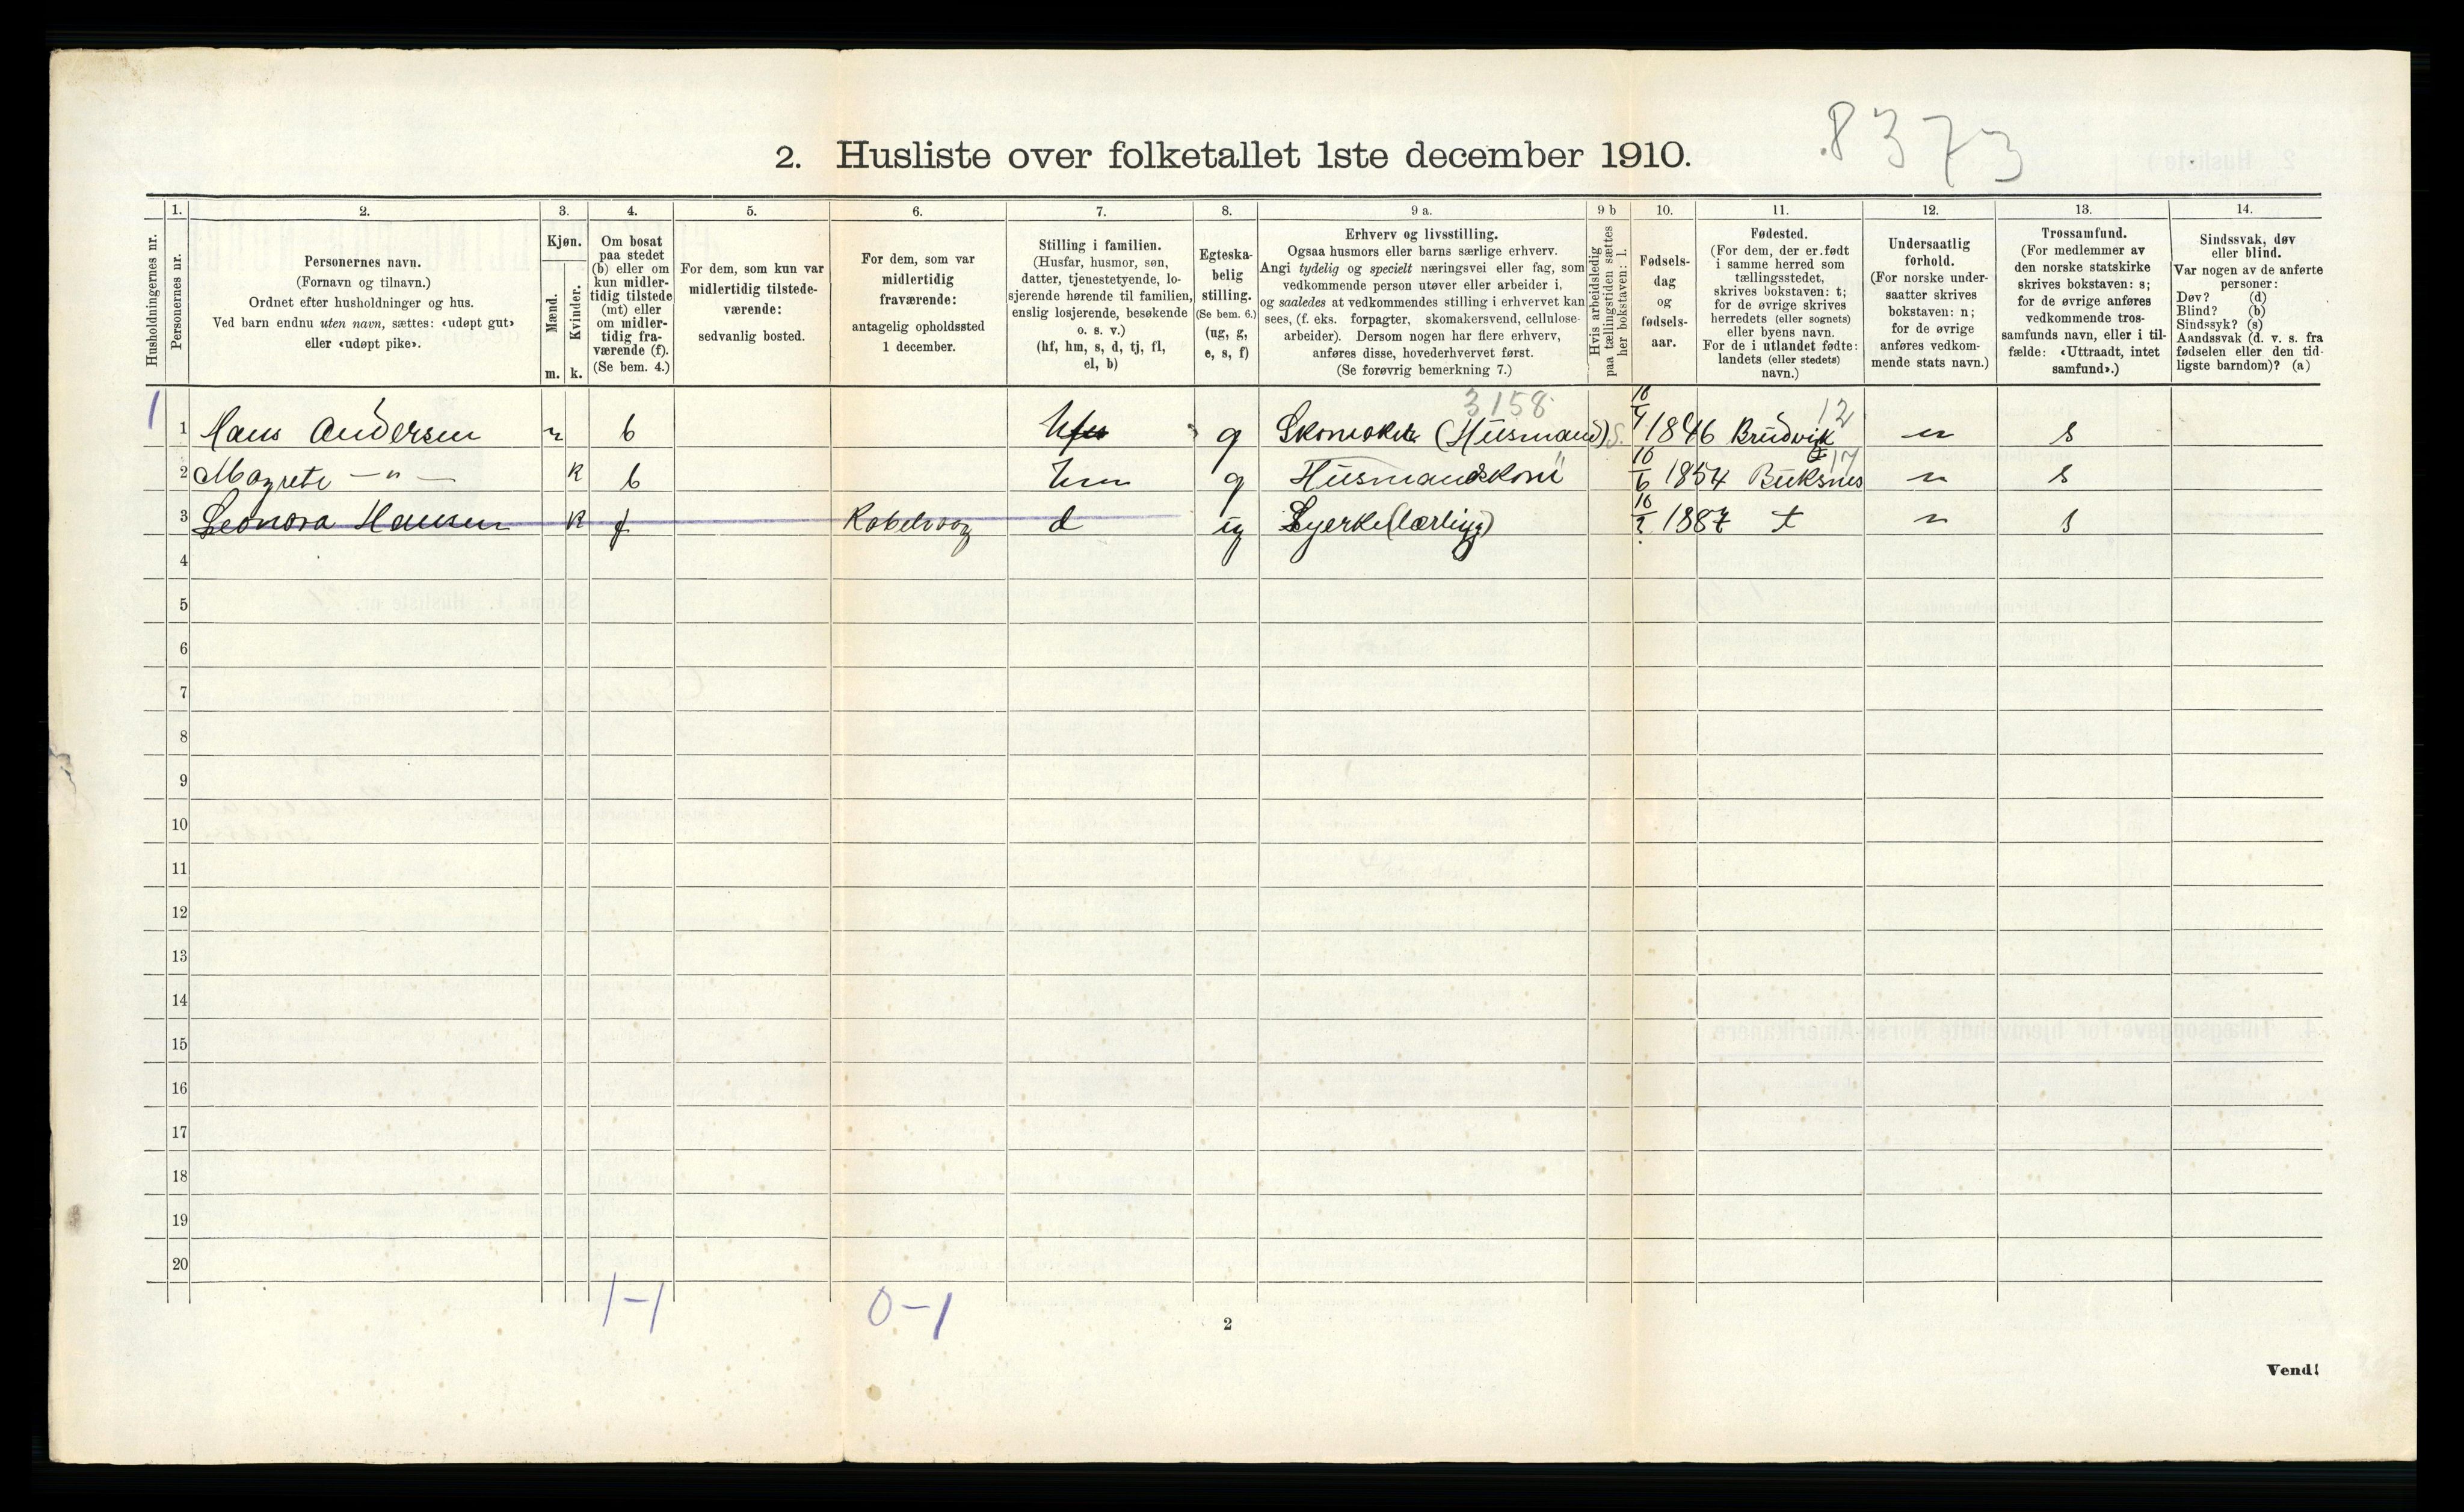 8373
2. Husliste over folketallet 1ste december 1910.
Husholdningernes nr.
1.
Personernes nr.
2.
Personernes navn.
(Fornavn og tilnavn.)
Ordnet efter husholdninger og hus.
Ved barn endnu uten navn, sættes: «udøpt gut»
eller «udøpt pike».
3.
Kjøn.
Mænd.
Kvinder.
m.
k.
4.
Om bosat
paa stedet
(b) eller om
kun midler-
tidig tilstede
(mt) eller
om midler-
tidig fra-
værende (f).
(Se bem. 4.)
5.
For dem, som kun var
midlertidig tilstede-
værende:
sedvanlig bosted.
6.
For dem, som var
midlertidig
fraværende:
antagelig opholdssted
1 december.
7.
Stilling i familien.
(Husfar, husmor, søn,
datter, tjenestetyende, lo-
sjerende hørende til familien,
enslig losjerende, besøkende
o. s. v.)
(hf, hm, s, d, tj, fl,
el, b)
8.
Egteska-
belig
stilling.
(Se bem. 6.)
(ug, g,
e, s, f)
9 a.
Erhverv og livsstilling.
Ogsaa husmors eller barns særlige erhverv.
Angi tydelig og specielt næringsvei eller fag, som
vedkommende person utøver eller arbeider i,
og saaledes at vedkommendes stilling i erhvervet kan
sees, (f. eks. forpagter, skomakersvend, cellulose-
arbeider). Dersom nogen har flere erhverv,
anføres disse, hovederhvervet først.
(Se forøvrig bemerkning 7.)
9 b
Hvis arbeidsledig
paa tællingstiden sættes
her bokstaven: l.
10.
Fødsels-
dag
og
fødsels-
aar.
11.
Fødested.
(For dem, der er født
i samme herred som
tællingsstedet,
skrives bokstaven: t;
for de øvrige skrives
herredets (eller sognets)
eller byens navn.
For de i utlandet fødte:
landets (eller stedets)
navn.)
12.
Undersaatlig
forhold.
(For norske under-
saatter skrives
bokstaven: n;
for de øvrige
anføres vedkom-
mende stats navn.)
13.
Trossamfund.
(For medlemmer av
den norske statskirke
skrives bokstaven: s;
for de øvrige anføres
vedkommende tros-
samfunds navn, eller i til-
fælde: «Uttraadt, intet
samfund».)
14.
Sindssvak, døv
eller blind.
Var nogen av de anførte
personer:
Døv? (d)
Blind? (b)
Sindssyk? (s)
Aandssvak (d. v. s. fra
fødselen eller den tid-
ligste barndom)? (a)
3158
12
1 1 Hans Andersen m b g Skomaker (Husmand) S. 1846 Brudvik n s
17
2 Magrete — " — k b hm g Husmandskone 10/6 1854 Buksnes n s
3 Leonora Hansen k f Kabelvaag d ug Syerke(lærling) 10/2 1887 t n s
4
5
6
7
8
9
10
11
12
13
14
15
16
17
18
19
20
1-1
0-1
2
Vend!